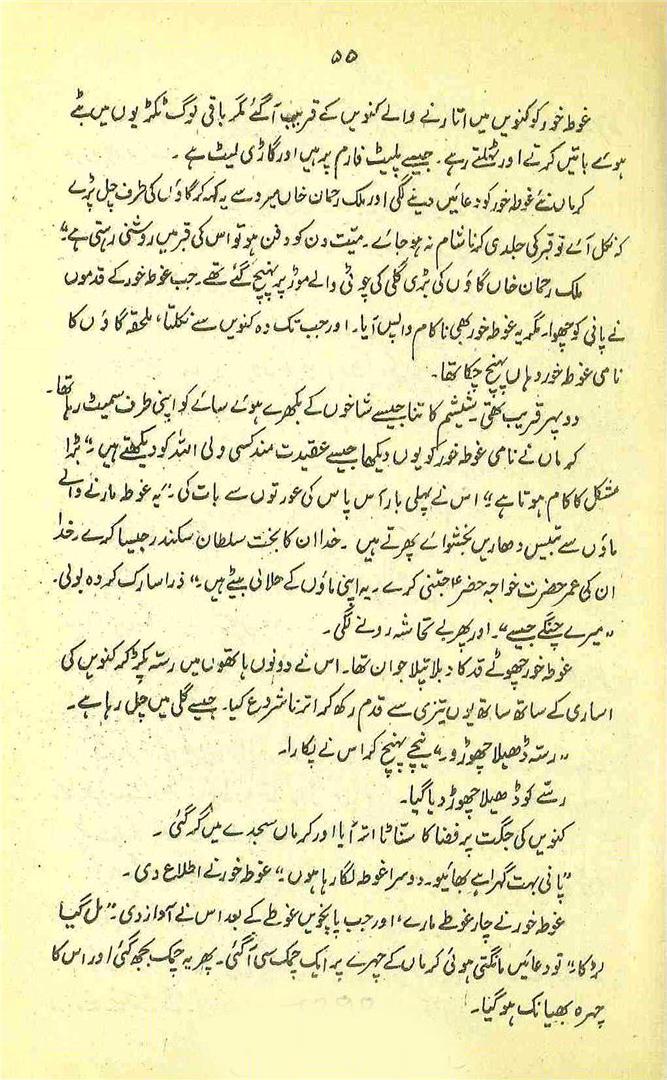 ۵۵
غوطہ خور کو کنویں میں اتارنے والے کنویں کے قریب آگئے مگر باقی لوگ ٹکڑیوں میں بٹے
ہوئے باتیں کرتے اور ٹہلتے رہے۔ جیسے پلیٹ فارم پر ہیں اور گاڑی لیٹ ہے۔
کرماں نئے غوطہ خور کو دعائیں دینے لگی اور ملک رحمان خاں میرو سے یہ کہہ کر گاؤں کی طرف چل پڑے
کہ نکل آئے تو قبر کی جلدی کرنا شام نہ ہو جائے۔ میّت دن کو دفن ہو تو اس کی قبر میں روشنی رہتی ہے"
ملک رحمان خاں گاؤں کی بڑی گلی کی چوٹی والے موڑ پر پہنچ گئے تھے۔ جب غوطہ خور کے قدموں
نے پانی کو چھوا۔ مگر یہ غوطہ خور بھی ناکام واپس آیا۔ اور جب تک وہ کنویں سے نکلتا، ملحقہ گاؤں کا
نامی غوطہ خور وہاں پہنچ چکا تھا۔
دوپہر قریب تھی شیشم کا تنا جیسے شاخوں کے بکھرے ہوئے سائے کو اپنی طرف سمیٹ رہا تھا۔
کرماں نے نامی غوطہ خور کو یوں دیکھا جیسے عقیدت مند کسی ولی اللہ کو دیکھتے ہیں۔ "بڑا
مشکل کا کام ہوتا ہے" اس نے پہلی بار آس پاس کی عورتوں سے بات کی۔ "یہ غوطہ مارنے والے
ماؤں سے تیس دھاریں بخشوائے پھرتے ہیں۔ خدا ان کا بخت سلطان سکندر جیسا کرے۔ خدا
ان کی عمر حضرت خواجہ خضرؑ جتنی کرے۔ یہ اپنی ماؤں کے حلالی بیٹے ہیں۔" ذرا سا رک کر وہ بولی۔
"میرے چنگے جیسے"۔ اور پھر بے تحاشہ رونے لگی۔
غوطہ خور چھوٹے قد کا دبلا پتلا جوان تھا۔ اس نے دونوں ہاتھوں میں رسّہ پکڑ کر کنویں کی
اساری کے ساتھ ساتھ یوں تیزی سے قدم رکھ کر اترنا شروع کیا۔ جیسے گلی میں چل رہا ہے۔
"رسّہ ڈھیلا چھوڑو۔" نیچے پہنچ کر اس نے پکارا۔
رسّے کو ڈھیلا چھوڑ دیا گیا۔
کنویں کی جگت پر فضا کا سنّاٹا اتر آیا اور کرماں سجدے میں گر گئی۔
"پانی بہت گہرا ہے بھائیو۔ دوسرا غوطہ لگا رہا ہوں۔" غوطہ خور نے اطلاع دی۔
غوطہ خور نے چار غوطے مارے، اور جب پانچویں غوطے کے بعد اس نے آواز دی۔ "مل گیا
لڑکا۔" تو دعائیں مانگتی ہوئی کرماں کے چہرے پر ایک چمک سی آگئی۔ پھر یہ چمک بجھ گئی اور اس کا
چہرہ بھیانک ہو گیا۔